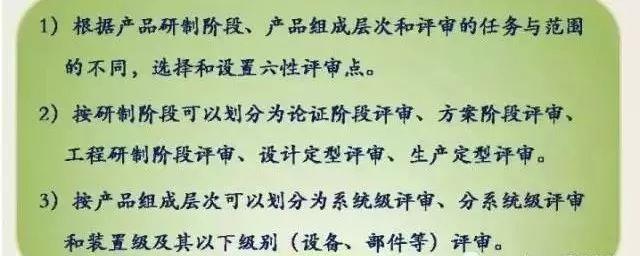 1）根据产品研制阶段、产品组成层次和评审的任务与范围
的不同，选择和设置六性评审点。
2）按研制阶段可以划分为论证阶段评审、方案阶段评审、
工程研制阶段评审、设计定型评审、生产定型评审。
3）按产品组成层次可以划分为系统级评审、分系统级评审
和装置级及其以下级别（设备、部件等）评审。